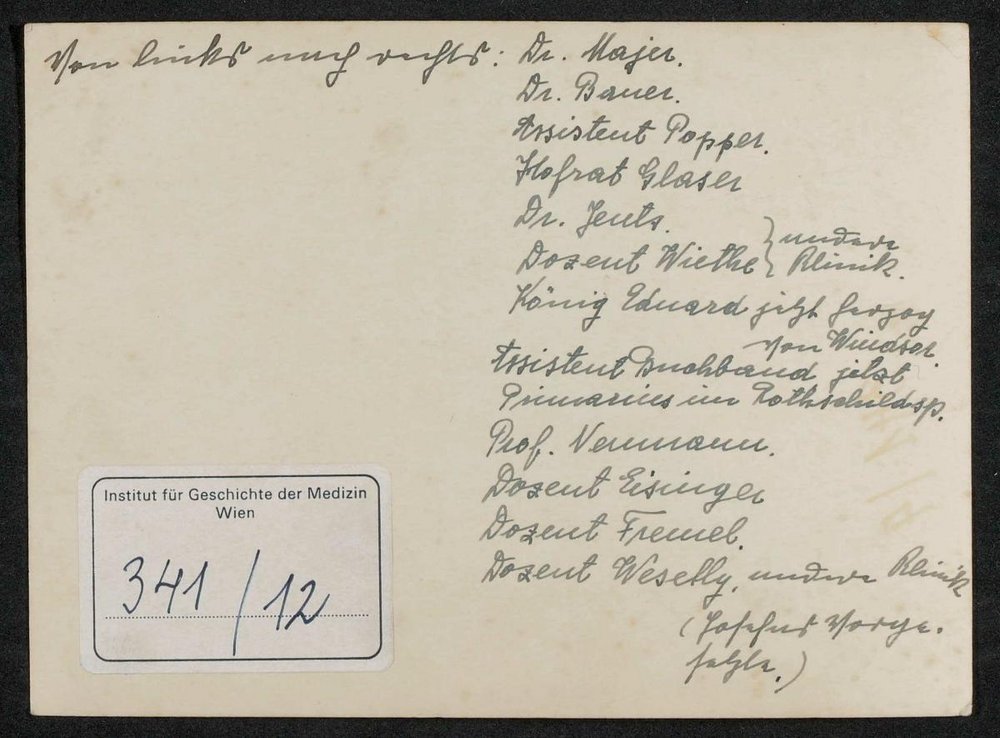 Von links nach rechts: Dr. Majer.
Dr. Bauer.
Assistent Popper.
Hofrat Glaser
Dr. Jents.
Dozent Wiethe } andere Klinik.
König Eduard jetzt Herzog
von Windsor.
Assistent Buchband jetzt
Primarius im Rothschildsp.
Prof. Neumann.
Dozent Eisinger
Dozent Fremel.
Dozent Wesselly, andere Klinik
(Josefus Vorge-
setzte.)
Institut für Geschichte der Medizin
Wien
341/12